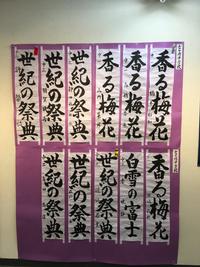 香る梅花
香る梅花
香る梅花
世紀の祭典
世紀の祭典
世紀の祭典
香る梅花
白雪の富士
世紀の祭典
世紀の祭典
世紀の祭典